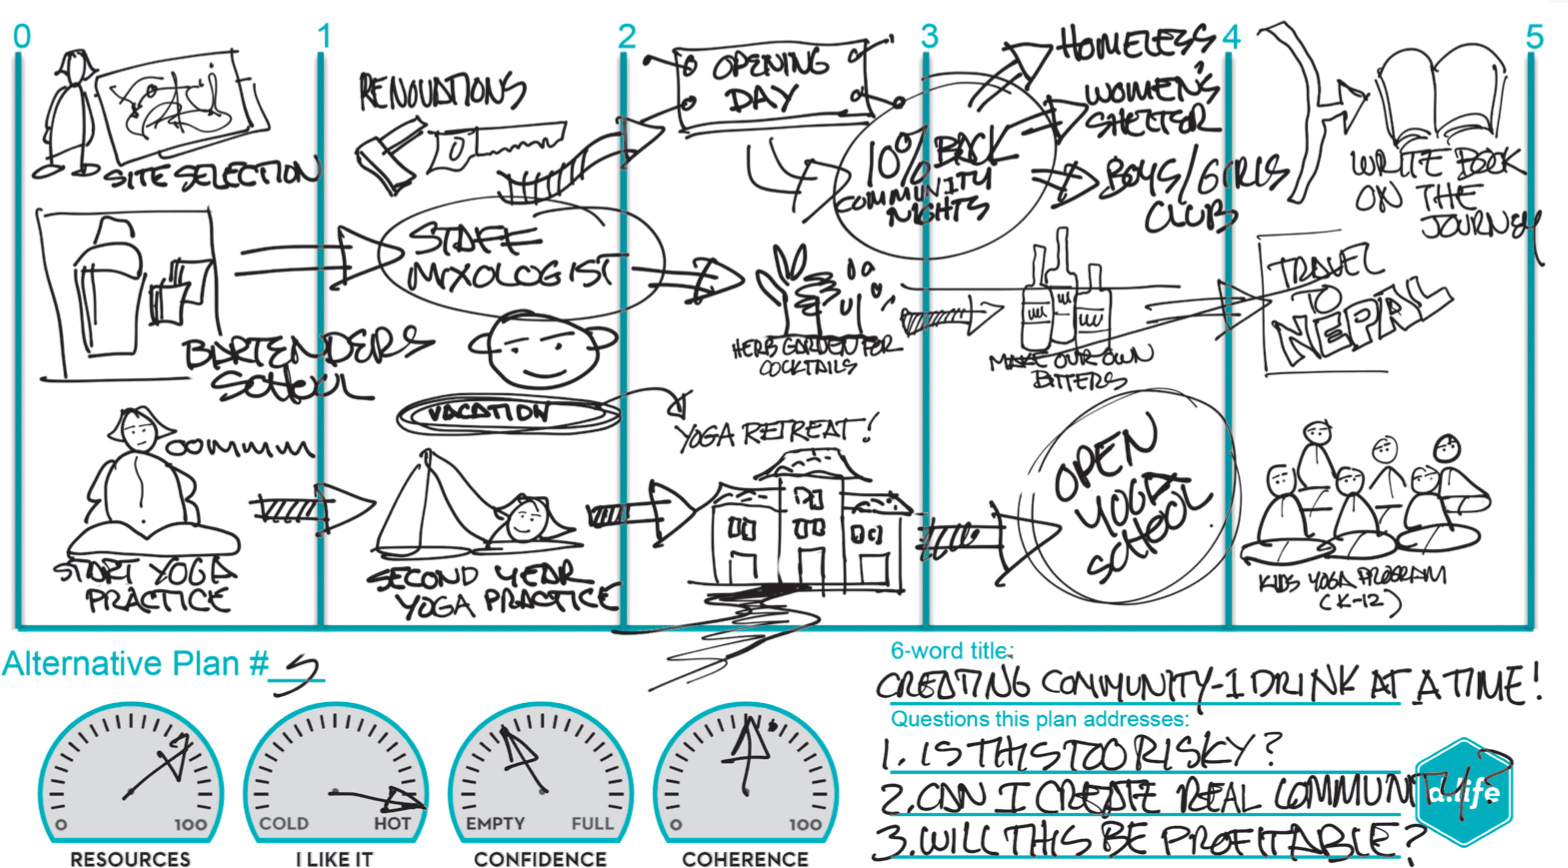 0 1 2 3 4 5
SITE SELECTION
RENOVATIONS
OPENING
DAY
10% BACK
COMMUNITY
NIGHTS
HOMELESS
WOMEN'S
SHELTOR
BOYS/GIRLS
CLUB
WRITE BOOK
ON THE
JOURNEY
BARTENDERS
SCHOOL
STAFF
MIXOLOGIST
HERB GARDEN FOR
COCKTAILS
MAKE OUR OWN
BITTERS
TRAVEL
TO
NEPAL
VACATION
oommm
START YOGA
PRACTICE
SECOND YEAR
YOGA PRACTICE
YOGA RETREAT!
OPEN
YOGA
SCHOOL
KIDS YOGA PROGRAM
(K-12)
Alternative Plan # 5
0 100
RESOURCES
COLD HOT
I LIKE IT
EMPTY FULL
CONFIDENCE
0 100
COHERENCE
6-word title:
CREATING COMMUNITY-1 DRINK AT A TIME!
Questions this plan addresses:
1. IS THIS TOO RISKY?
2. CAN I CREATE REAL COMMUNITY?
3. WILL THIS BE PROFITABLE?
d.life